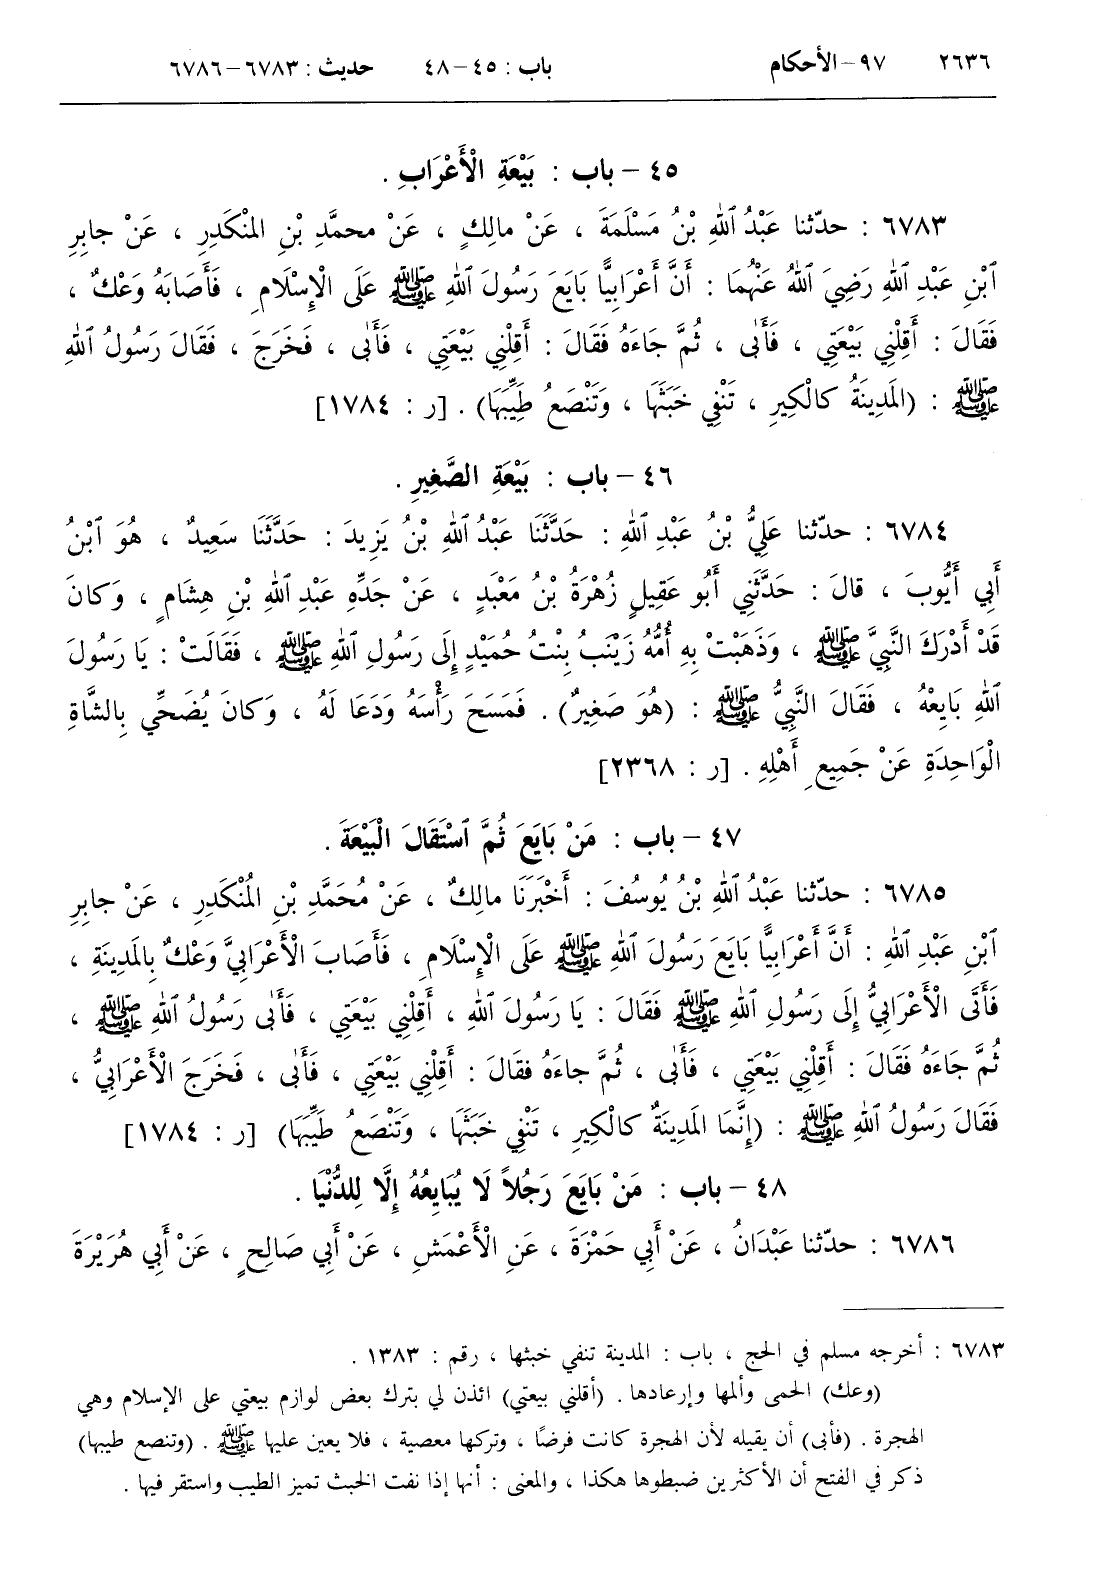 ٢٦٣٦ ٩٧ – الأحكام باب : ٤٥ – ٤٨ حديث : ٦٧٨٣ – ٦٧٨٦
٤٥ – باب : بَيْعَةِ الْأَعْرَابِ .
٦٧٨٣ : حدّثنا عَبْدُ ٱللهِ بْنُ مَسْلَمَةَ ، عَنْ مالِكٍ ، عَنْ محمَّدِ بْنِ المُنْكَدِرِ ، عَنْ جابِرِ
ٱبْنِ عَبْدِ ٱللهِ رَضِيَ ٱللهُ عَنْهُمَا : أَنَّ أَعْرَابِيًّا بَايَعَ رَسُولَ ٱللهِ ﷺ عَلَى الْإِسْلَامِ ، فَأَصَابَهُ وَعْكٌ ،
فَقَالَ : أَقِلْنِي بَيْعَتِي ، فَأَبٰى ، ثُمَّ جاءَهُ فَقَالَ : أَقِلْنِي بَيْعَتِي ، فَأَبٰى ، فَخَرَجَ ، فَقَالَ رَسُولُ ٱللهِ
ﷺ : (المَدِينَةُ كالْكِيرِ ، تَنْفِي خَبَثَهَا ، وَتَنْصَعُ طَيِّبَهَا) . [ر : ١٧٨٤]
٤٦ – باب : بَيْعَةِ الصَّغِيرِ .
٦٧٨٤ : حدّثنا عَلِيُّ بْنُ عَبْدِ ٱللهِ : حَدَّثَنَا عَبْدُ ٱللهِ بْنُ يَزِيدَ : حَدَّثَنَا سَعِيدٌ ، هُوَ ٱبْنُ
أَبِي أَيُّوبَ ، قالَ : حَدَّثَنِي أَبُو عَقِيلٍ زُهْرَةُ بْنُ مَعْبَدٍ ، عَنْ جَدِّهِ عَبْدِ ٱللهِ بْنِ هِشَامٍ ، وَكانَ
قَدْ أَدْرَكَ النَّبِيَّ ﷺ ، وَذَهَبَتْ بِهِ أُمُّهُ زَيْنَبُ بِنْتُ حُمَيْدٍ إِلَى رَسُولِ ٱللهِ ﷺ ، فَقَالَتْ : يَا رَسُولَ
ٱللهِ بَايِعْهُ ، فَقَالَ النَّبِيُّ ﷺ : (هُوَ صَغِيرٌ) . فَمَسَحَ رَأْسَهُ وَدَعَا لَهُ ، وَكانَ يُضَحِّي بِالشَّاةِ
الْوَاحِدَةِ عَنْ جَمِيعِ أَهْلِهِ . [ر : ٢٣٦٨]
٤٧ – باب : مَنْ بَايَعَ ثُمَّ ٱسْتَقَالَ الْبَيْعَةَ .
٦٧٨٥ : حدّثنا عَبْدُ ٱللهِ بْنُ يُوسُفَ : أَخْبَرَنَا مالِكٌ ، عَنْ مُحَمَّدِ بْنِ الْمُنْكَدِرِ ، عَنْ جابِرِ
ٱبْنِ عَبْدِ ٱللهِ : أَنَّ أَعْرَابِيًّا بَايَعَ رَسُولَ ٱللهِ ﷺ عَلَى الْإِسْلَامِ ، فَأَصَابَ الْأَعْرَابِيَّ وَعْكٌ بِالمَدِينَةِ ،
فَأَتَى الْأَعْرَابِيُّ إِلَى رَسُولِ ٱللهِ ﷺ فَقَالَ : يَا رَسُولَ ٱللهِ ، أَقِلْنِي بَيْعَتِي ، فَأَبٰى رَسُولُ ٱللهِ ﷺ ،
ثُمَّ جاءَهُ فَقَالَ : أَقِلْنِي بَيْعَتِي ، فَأَبٰى ، ثُمَّ جاءَهُ فقَالَ : أَقِلْنِي بَيْعَتِي ، فَأَبٰى ، فَخَرَجَ الْأَعْرَابِيُّ ،
فَقَالَ رَسُولُ ٱللهِ ﷺ : (إِنَّمَا المَدِينَةُ كالْكِيرِ ، تَنْفِي خَبَثَهَا ، وَتَنْصَعُ طَيِّبَهَا) [ر : ١٧٨٤]
٤٨ – باب : مَنْ بَايَعَ رَجُلاً لَا يُبَايِعُهُ إِلَّا لِلدُّنْيَا .
٦٧٨٦ : حدّثنا عَبْدَانُ ، عَنْ أَبِي حَمْزَةَ ، عَنِ الْأَعْمَشِ ، عَنْ أَبِي صَالِحٍ ، عَنْ أَبِي هُرَيْرَةَ
٦٧٨٣ : أخرجه مسلم في الحج ، باب : المدينة تنفي خبثها ، رقم : ١٣٨٣ .
(وعك) الحمى وألمها وإرعادها . (أقلني بيعتي) ائذن لي بترك بعض لوازم بيعتي على الإسلام وهي
الهجرة . (فأبى) أن يقيله لأن الهجرة كانت فرضًا ، وتركها معصية ، فلا يعين عليها ﷺ . (وتنصع طيبها)
ذكر في الفتح أن الأكثرين ضبطوها هكذا ، والمعنى : أنها إذا نفت الخبث تميز الطيب واستقر فيها .